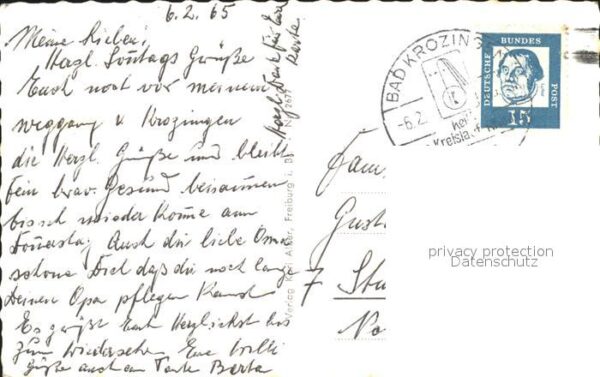 6.2.65
Meine Lieben,
Herzl. Sontags Grüße
Euch noch vor meinem
weggang v Krozingen
die Herzl. Grüße und bleibt
fein brav. Gesund beisammen
bis ich wieder kome am
Donerstag, Auch dir liebe Oma
schone Dich daß du noch lange
Deinen Opa pflegen kanst
Es grüßt Euch Herzlichst bis
zum wiedersehn Eure Willi
Grüße auch an Tante Berta
Herzl Dank für die Karte
Verlag Karl Alber, Freiburg i. Br.
Nr. 267
BAD KROZIN
-6.2
Kreisla
DEUTSCHE BUNDES POST
15
Fam
Gust
7 Stu
privacy protection
Datenschutz